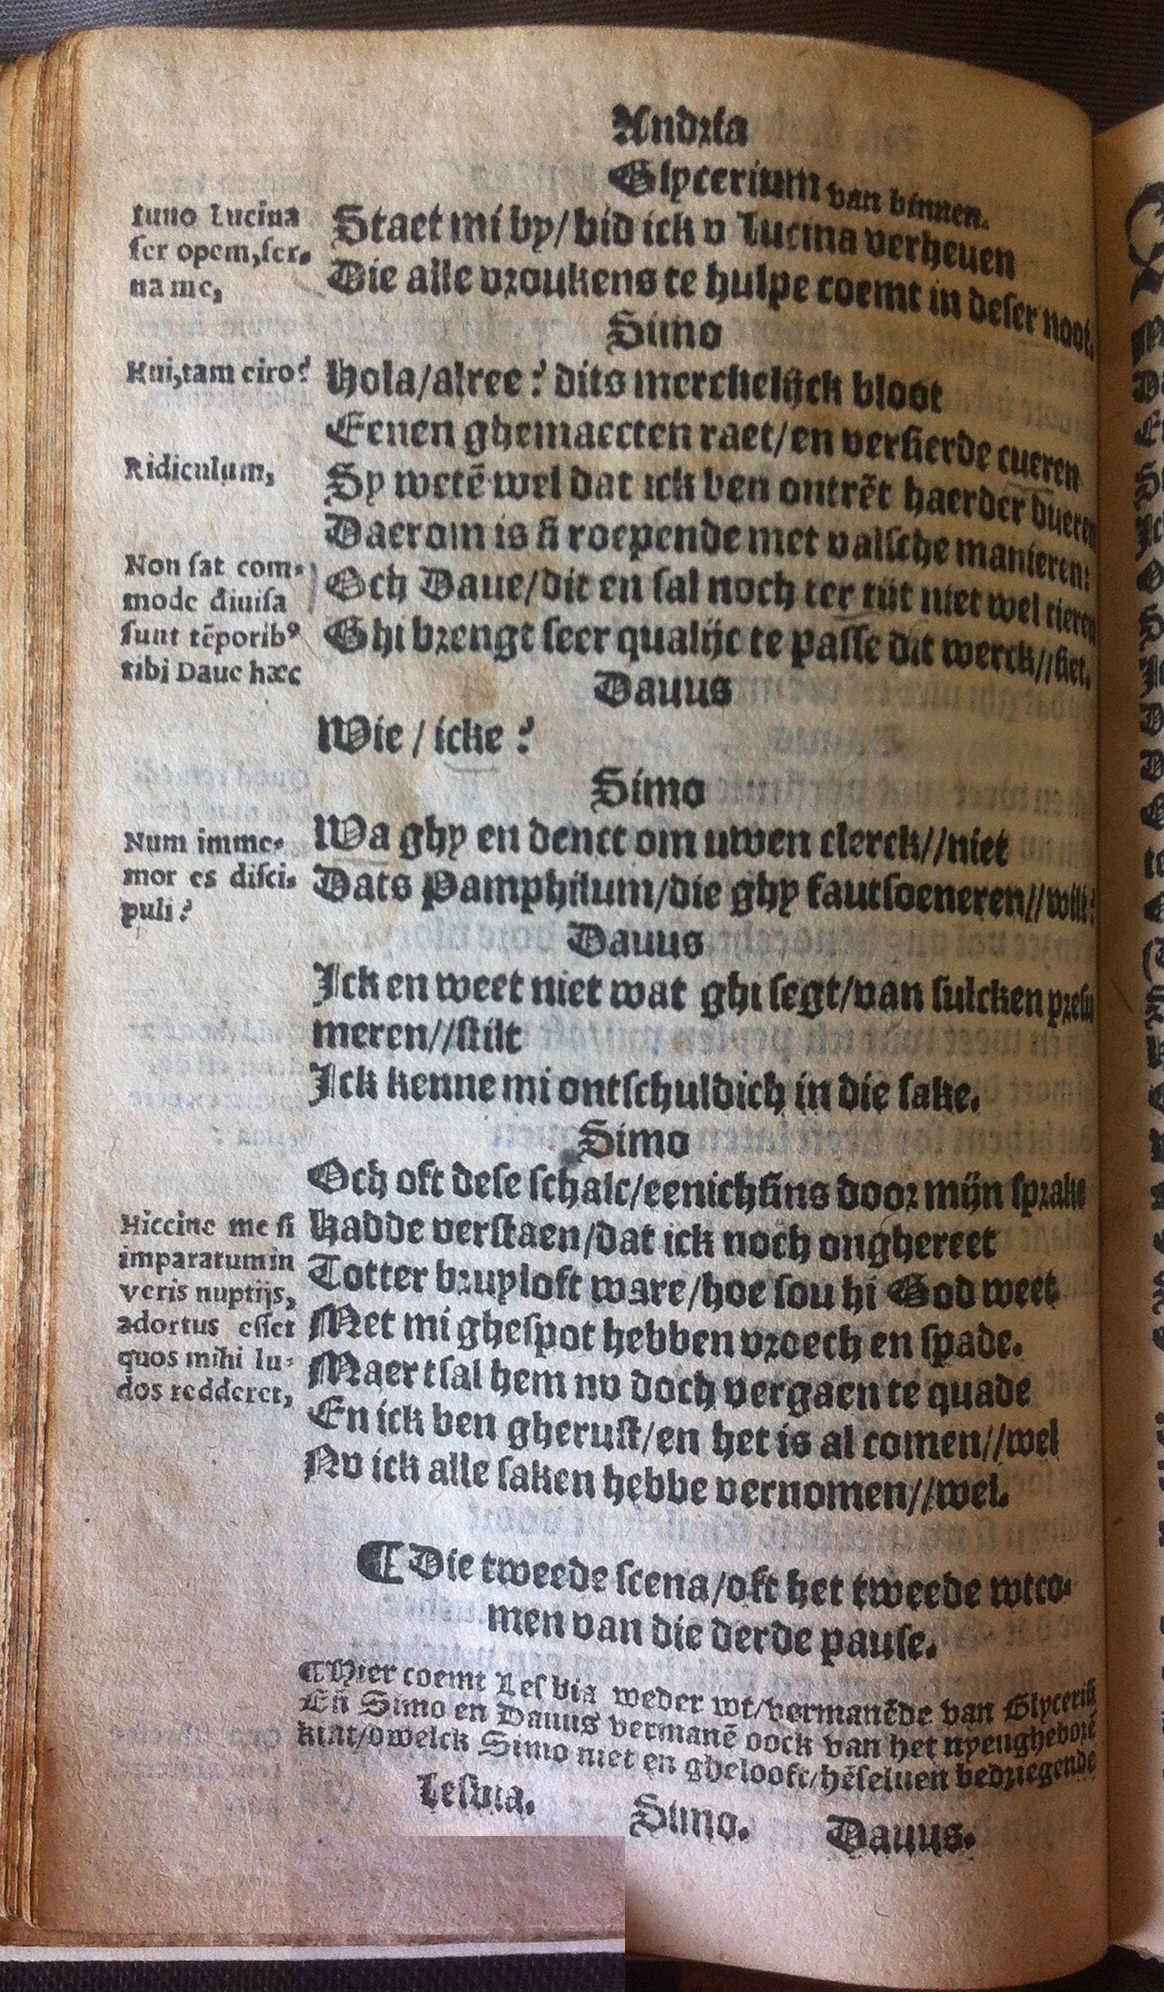 Andria
Glycerium van binnen.
Iuno Lucina
fer opem, ser-
ua me,
Staet mi by/ bid ick v Lucina verheuen
Die alle vroukens te hulpe coemt in deser noot.
Simo
Hui, tam cito?
Hola/alree? dits merckelijck bloot
Eenen ghemaecten raet/en versierde cueren
Ridiculum,
Sy wetē wel dat ick ben ontrēt haerder dueren
Daerom is si roepende met valsche manieren:
Non sat com-
mode diuisa
sunt tēporibꝰ
tibi Daue hæc
Och Daue/dit en sal noch ter tijt niet wel tieren
Ghi brengt seer qualijc te passe dit werck//siet.
Dauus
Wie / icke ?
Simo
Num imme-
mor es disci-
puli?
Wa ghy en denct om uwen clerck//niet
Dats Pamphilum/die ghy fautsoeneren//wilt?
Dauus
Ick en weet niet wat ghi segt/van sulcken presu
meren//stilt
Ick kenne mi ontschuldich in die sake.
Simo
Och oft dese schalc/eenichsins door mijn sprake
Hiccine me si
imparatum in
veris nuptijs,
adortus esset
quos mihi lu-
dos redderet,
Hadde verstaen/dat ick noch onghereet
Totter bruyloft ware/hoe sou hi God weet
Met mi ghespot hebben vroech en spade.
Maer tsal hem nv doch vergaen te quade
En ick ben gherust/en het is al comen//wel
Nv ick alle saken hebbe vernomen//wel.
¶ Die tweede scena/oft het tweede wtco-
men van die derde pause.
¶ Hier coemt Lesbia weder wt/vermanēde van Glyceriū
Eñ Simo en Dauus vermanē oock van het nyeugheborē
kint/dwelck Simo niet en ghelooft/hēseluen bedriegende
Lesbia. Simo. Dauus.